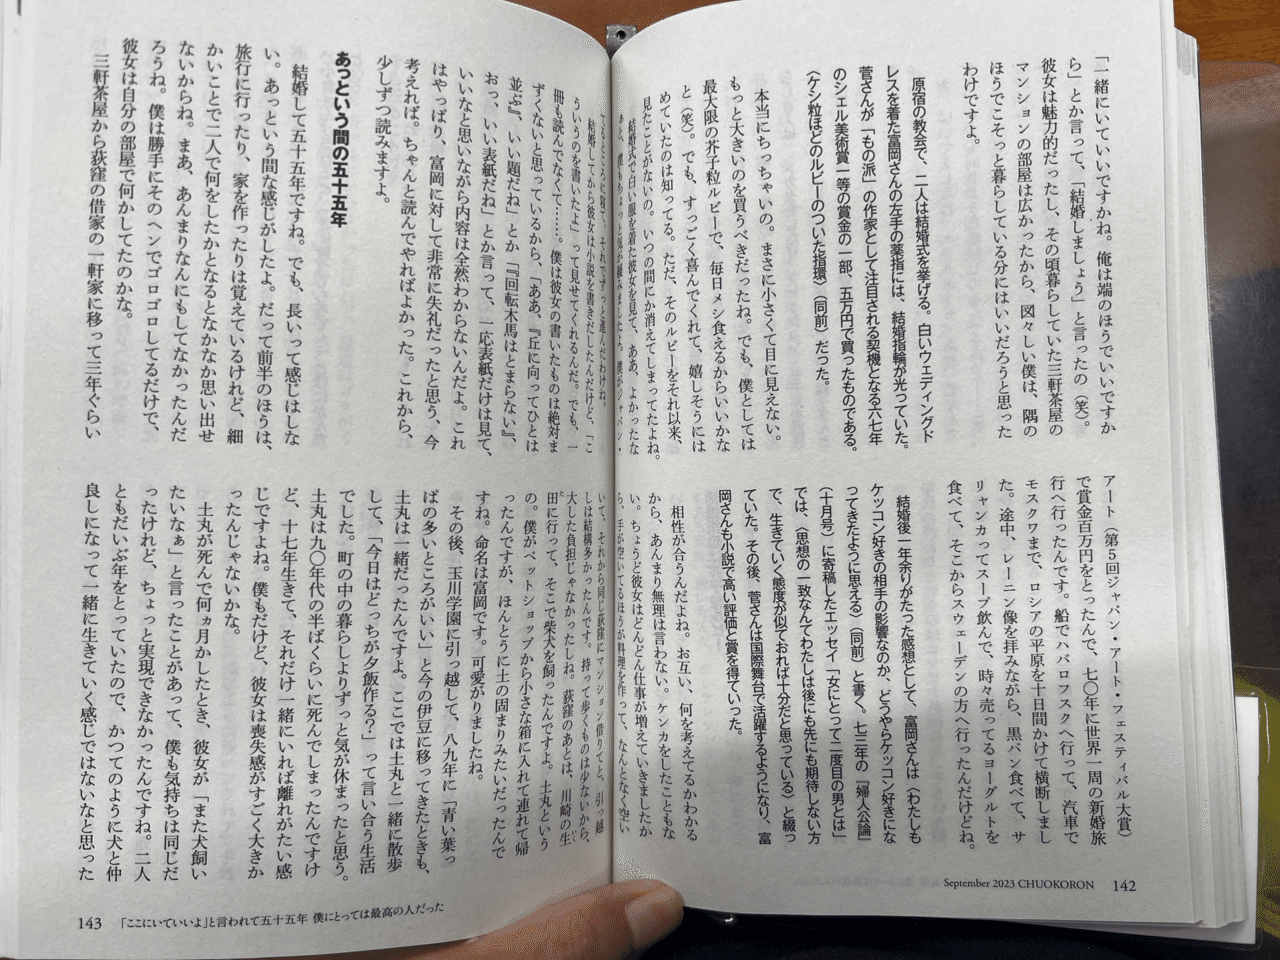 「一緒にいていいですかね。俺は端のほうでいいですか
ら」とか言って、「結婚しましょう」と言ったの（笑）。
彼女は魅力的だったし、その頃暮らしていた三軒茶屋の
マンションの部屋は広かったから、図々しい僕は、隅の
ほうでこそっと暮らしている分にはいいだろうと思った
わけですよ。
原宿の教会で、二人は結婚式を挙げる。白いウェディングド
レスを着た富岡さんの左手の薬指には、結婚指輪が光っていた。
菅さんが「もの派」の作家として注目される契機となる六七年
のシェル美術賞一等の賞金の一部、五万円で買ったものである。
〈ケシ粒ほどのルビーのついた指環〉（同前）だった。
本当にちっちゃいの。まさに小さくて目に見えない。
もっと大きいのを買うべきだったね。でも、僕としては
最大限の芥子粒ルビーで、毎日メシ食えるからいいかな
と（笑）。でも、すっごく喜んでくれて、嬉しそうには
めていたのは知ってる。ただ、そのルビーをそれ以来、
見たことがないの。いつの間にか消えてしまってたよね。
結婚式で白い服を着た彼女を見て、ああ、よかったな
あと、僕もちょっと気が緩みましたよ。僕がジャパン・
アート（第５回ジャパン・アート・フェスティバル大賞）
で賞金百万円をとったんで、七〇年に世界一周の新婚旅
行へ行ったんです。船でハバロフスクへ行って、汽車で
モスクワまで、ロシアの平原を十日間かけて横断しまし
た。途中、レーニン像を拝みながら、黒パン食べて、サ
リャンカってスープ飲んで、時々売ってるヨーグルトを
食べて、そこからスウェーデンの方へ行ったんだけどね。
結婚後一年余りがたった感想として、富岡さんは〈わたしも
ケッコン好きの相手の影響なのか、どうやらケッコン好きにな
ってきたように思える〉（同前）と書く。七三年の『婦人公論』
（十月号）に寄稿したエッセイ「女にとって二度目の男とは」
では、〈思想の一致なんてわたしは後にも先にも期待しない方
で、生きていく態度が似ておれば十分だと思っている〉と綴っ
ていた。その後、菅さんは国際舞台で活躍するようになり、富
岡さんも小説で高い評価と賞を得ていった。
相性が合うんだよね。お互い、何を考えてるかわかる
から、あんまり無理は言わない。ケンカをしたこともな
い。ちょうど彼女はどんどん仕事が増えていきましたか
ら、手が空いてるほうが料理を作って、なんとなく空い
September 2023 CHUOKORON 142
てるところに寝て、それでずっと進んだわけね。
結婚してから彼女は小説を書きだしたんだけど、「こ
ういうのを書いたよ」って見せてくれるんだ。でも、一
冊も読んでなくて……。僕は彼女の書いたものは絶対ま
ずくないと思っているから、「ああ、『丘に向ってひとは
並ぶ』、いい題だね」とか「『回転木馬はとまらない』、
おっ、いい表紙だね」とか言って、一応表紙だけは見て、
いいなと思いながら内容は全然わからないんだよ。これ
はやっぱり、富岡に対して非常に失礼だったと思う、今
考えれば。ちゃんと読んでやればよかった。これから、
少しずつ読みますよ。
あっという間の五十五年
結婚して五十五年ですね。でも、長いって感じはしな
い。あっという間な感じがしたよ。だって前半のほうは、
旅行に行ったり、家を作ったりは覚えているけれど、細
かいことで二人で何をしたかとなるとなかなか思い出せ
ないからね。まあ、あんまりなんにもしてなかったんだ
ろうね。僕は勝手にそのヘンでゴロゴロしてるだけで、
彼女は自分の部屋で何かしてたのかな。
三軒茶屋から荻窪の借家の一軒家に移って三年ぐらい
いて、それから同じ荻窪にマンション借りてと、引っ越
しは結構多かったんです。持って歩くものは少ないから、
大した負担じゃなかったしね。荻窪のあとは、川崎の生
田に行って、そこで柴犬を飼ったんですよ。土丸という
の。僕がペットショップから小さな箱に入れて連れて帰
ったんですが、ほんとうに土の固まりみたいだったんで
すね。命名は富岡です。可愛がりましたね。
その後、玉川学園に引っ越して、八九年に「青い葉っ
ぱの多いところがいい」と今の伊豆に移ってきたときも、
土丸は一緒だったんですよ。ここでは土丸と一緒に散歩
して、「今日はどっちが夕飯作る？」って言い合う生活
でした。町の中の暮らしよりずっと気が休まったと思う。
土丸は九〇年代の半ばくらいに死んでしまったんですけ
ど、十七年生きて、それだけ一緒にいれば離れがたい感
じですよね。僕もだけど、彼女は喪失感がすごく大きか
ったんじゃないかな。
土丸が死んで何ヵ月かしたとき、彼女が「また犬飼い
たいなぁ」と言ったことがあって、僕も気持ちは同じだ
ったけれど、ちょっと実現できなかったんですね。二人
ともだいぶ年をとっていたので、かつてのように犬と仲
良しになって一緒に生きていく感じではないなと思った
143 「ここにいていいよ」と言われて五十五年 僕にとっては最高の人だった